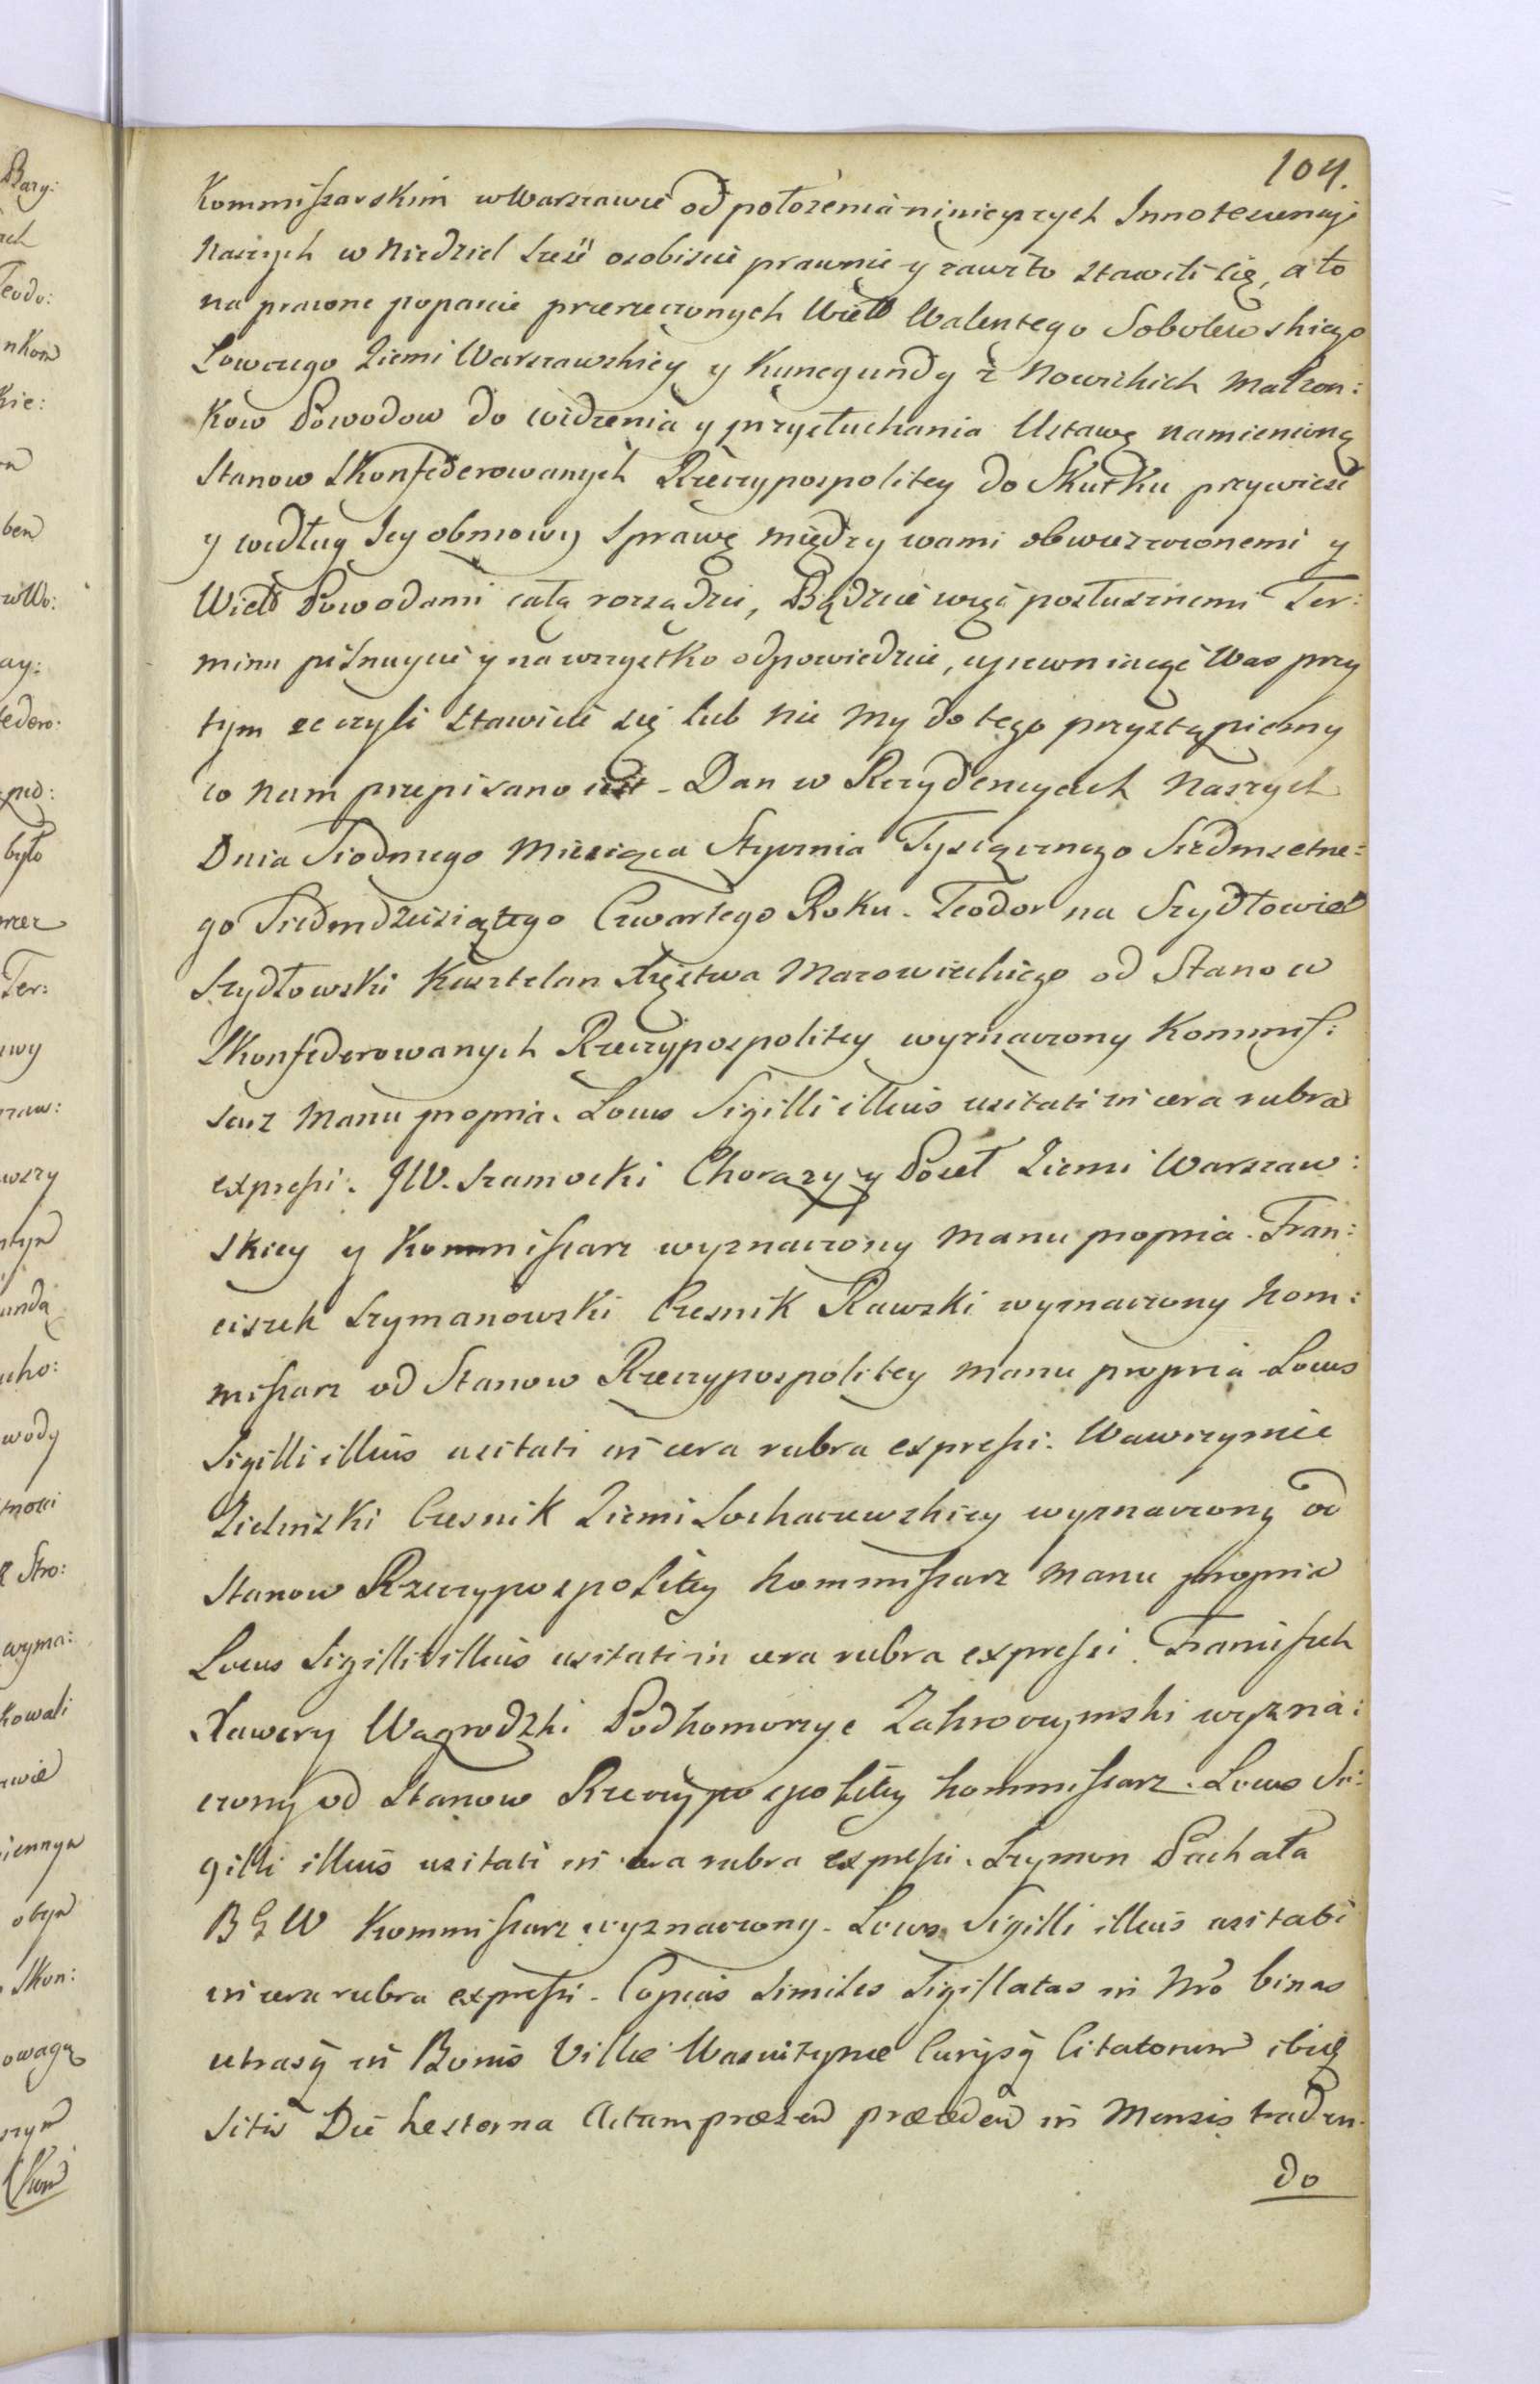 104.
Kommissarskim w Warszawie od położenia ninieyszych Innotescencyi
Naszych w Niedziel sześć osobiście prawnie y zawito stawili się, a to
na prawne poparcie przerzeczonych Wielo Walentego Sobolewskiego
Łowczego Ziemi Warszawskiey y Kunegundy z Nowickich Małżon:
kow Powodow do widzenia y przysłuchania Ustawę namienioną
Stanow Skonfederowanych Rzeczypospolitey do Skutku przywieść
y według Jey obmowy Sprawę między wami obwieszczonemi y
Wielo Powodami całą rozsądzić, Bądźcie więc posłusznemi Ter:
minu pilnuycie y na wszystko odpowiedzcie, upewniaiąc Was przy
tym że czyli stawicie się lub nie My do tego przystąpiemy
co nam przepisano iest - Dan w Rezydencyach Naszych
Dnia Siodmego Miesiąca Stycznia Tysiącznego Siedmsetne:
go Siedmdziesiątego Czwartego Roku. Teodor na Szydłowie
Szydłowski Kasztelan Xięstwa Mazowieckiego od Stanow
Skonfederowanych Rzeczypospolitey wyznaczony Kommis:
sarz Manu propria. Locus Sigilli illius usitati in cera rubra
expressi. JW. Szamocki Chorąży y Poseł Ziemi Warszaw:
skiey y Kommissarz wyznaczony Manu propria. Fran:
ciszek Szymanowski Cześnik Rawski wyznaczony Kom:
missarz od Stanow Rzeczypospolitey Manu propria Locus
Sigilli illius usitati in cera rubra expressi. Wawrzynie
Zieliński Cześnik Ziemi Sochaczewskiey wyznaczony od
Stanow Rzeczypospolitey Kommissarz Manu propria
Locus Sigilli illius usitati in cera rubra expressi. Franciszek
Xawery Wągrodzki Podkomorzyc Zakroczymski wyzna:
czony od Stanow Rzeczypospolitey Kommissarz. Locus Si:
gilli illius usitati in cera rubra expressi. Szymon Pachała
B G W Kommissarz wyznaczony. Locus Sigilli illius usitati
in cera rubra expressi. Copias Similes Sigillatas in Nro binas
utrasq in Bonis Villæ Curysq Citatorum ibidę
sitis Die hesterna Actum præsen præceden in Mensis traden:
do